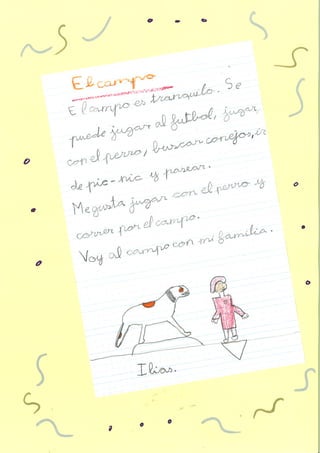 El campo
El campo es tranquilo. Se
puede jugar al futbol, jugar
con el perro, buscar conejos, ir
de pic-nic y pasear.
Me gusta jugar con el perro y
correr por el campo.
Voy al campo con mi familia.
Ilias.